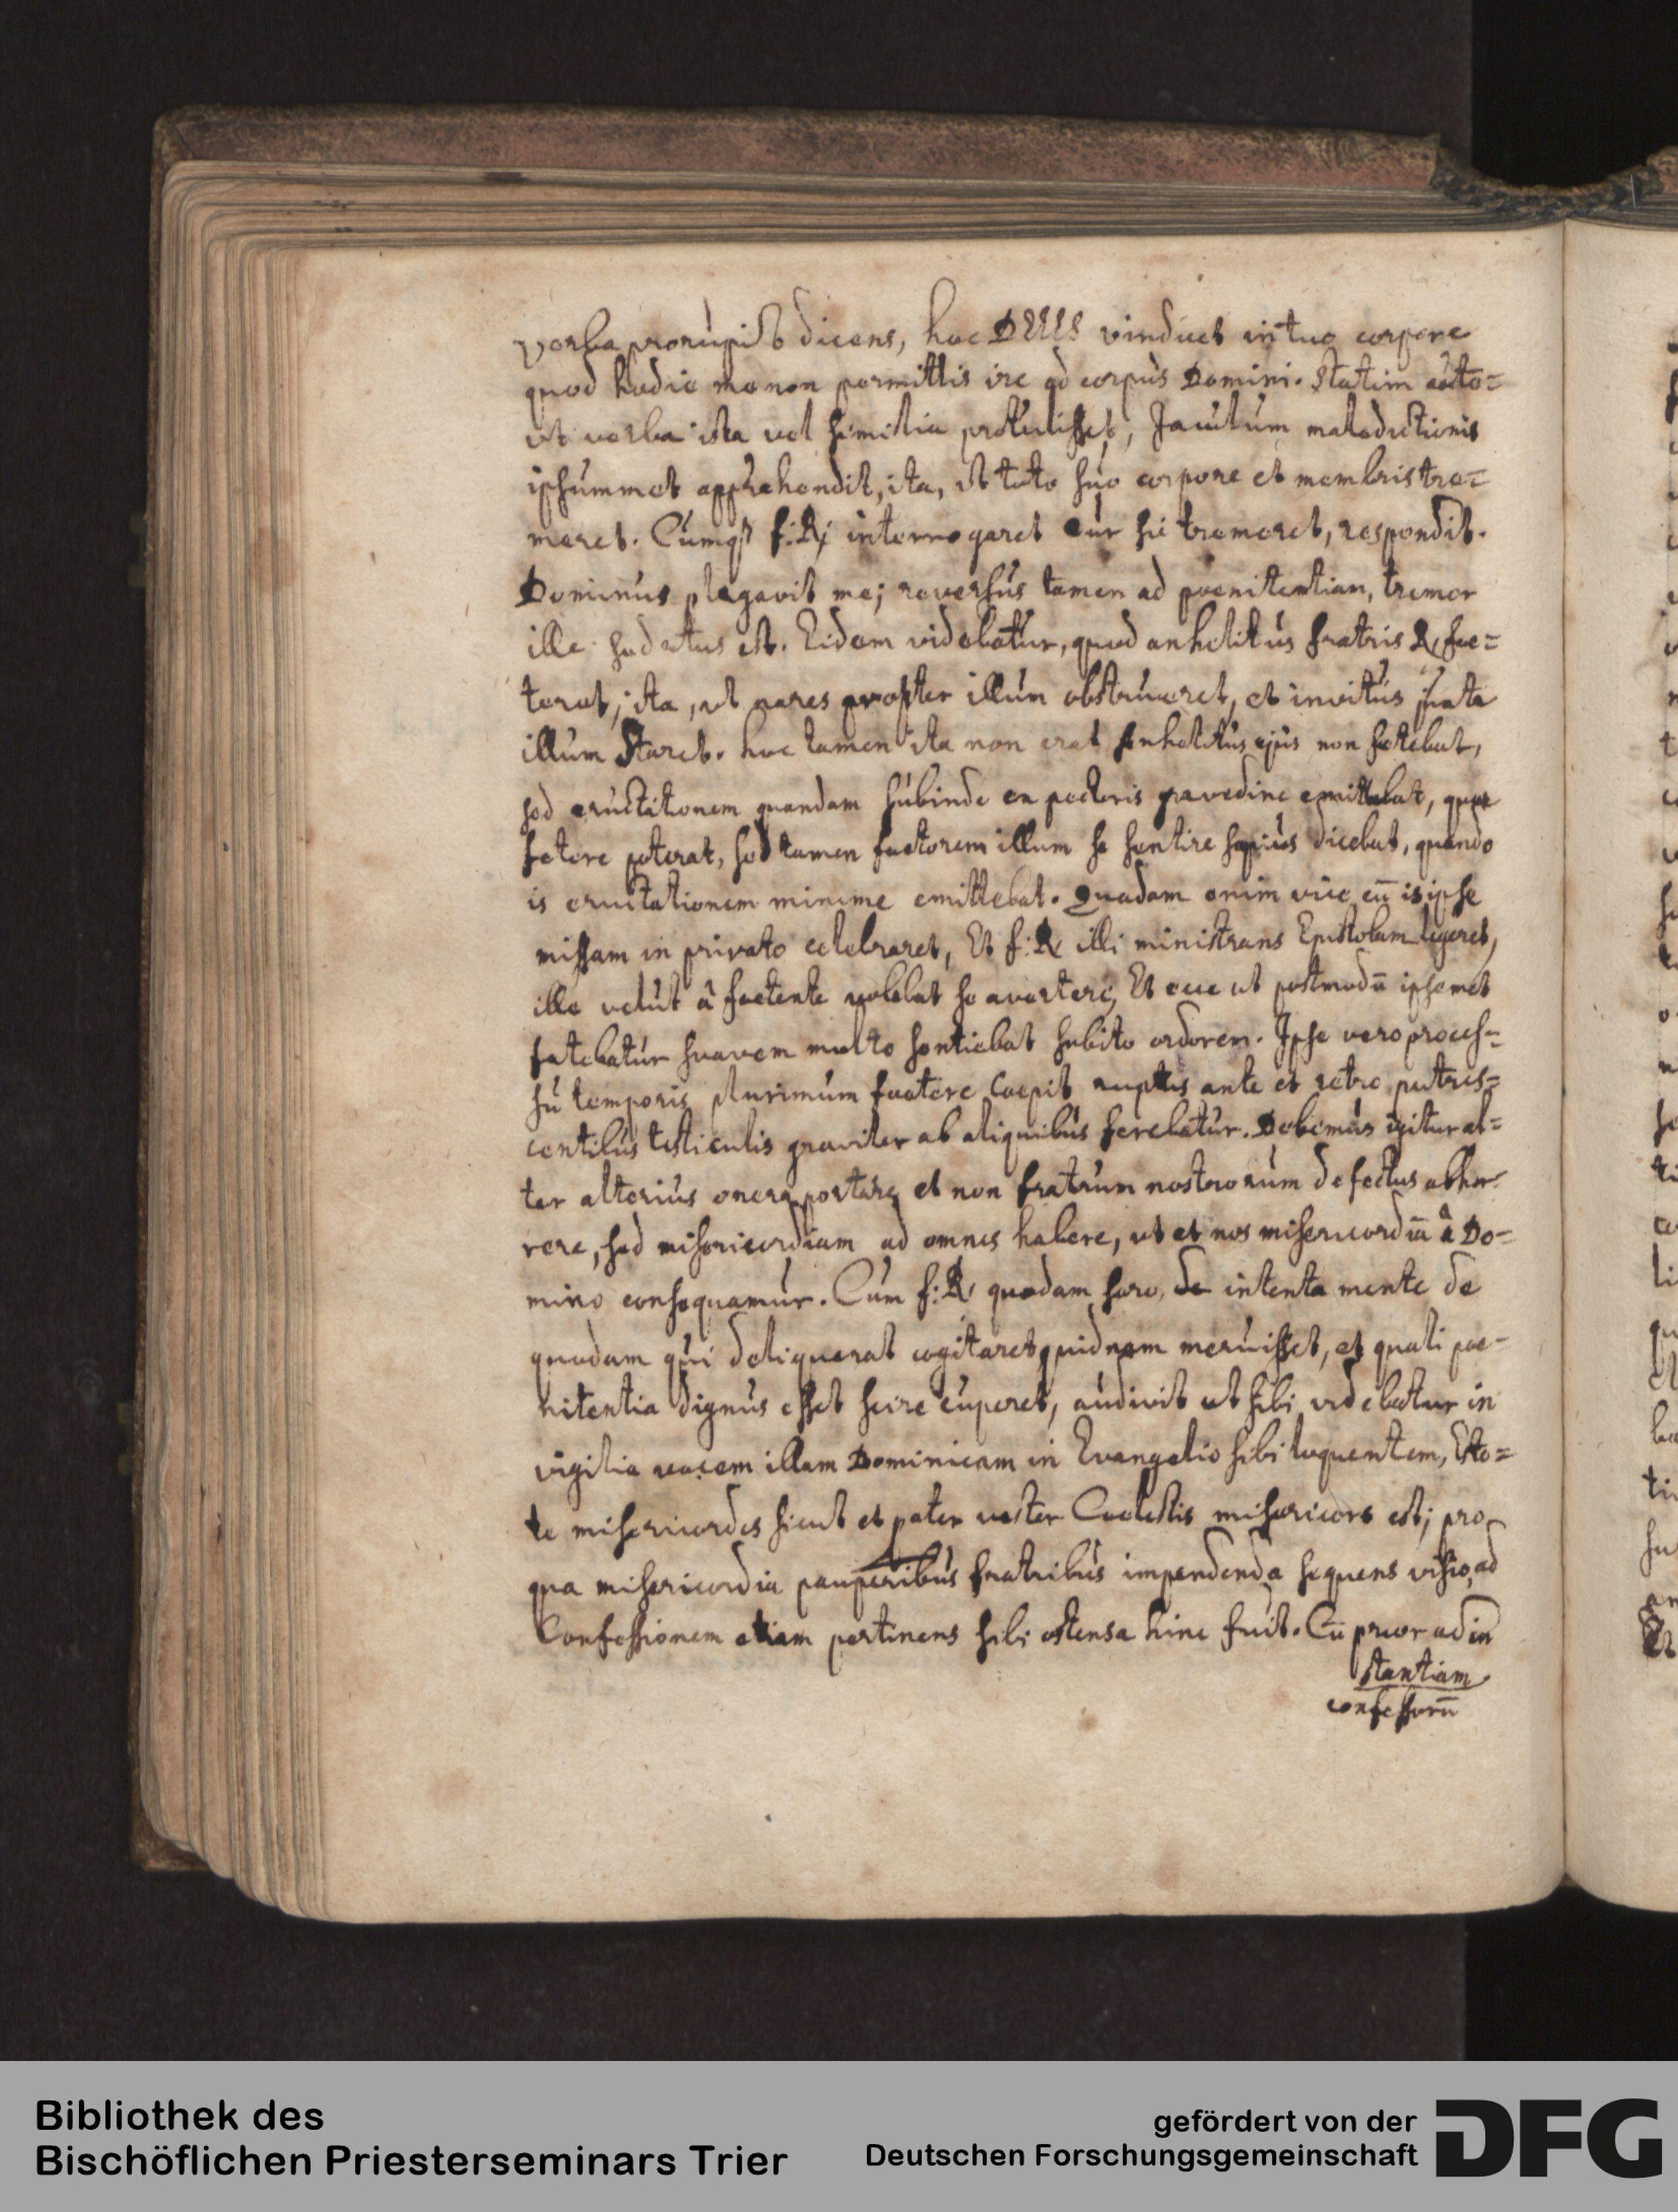 verba prorupit dicens, hoc DEUS vindicet in tuo corpore
quod hodie me non permittis ire ad corpus Domini. Statim
ut verba ista vel similia protulisset, Jaculum maledictionis
ipsummet apprehendit, ita, ut toto suo corpore et membris tre=
meret. Cumq3 f: R: interrogaret Cur sic tremeret, respondit.
Dominus plagavit me; reversus tamen ad poenitentiam, tremor
ille sedatus est. Eidem videbatur, quod anhelitus fratris R. foe=
teret; ita, ut nares propter illum obstrueret, et invitus juxta
illum Staret. hoc tamen ita non erat anhelitus ejus non fetebat,
sed eructationem quandam subinde ex pectoris gravedine emittebat, quae
fetere poterat, sed tamen foetorem illum se sentire sepius dicebat, quando
is eructationem minime emittebat. Quadam enim vice cū is ipse
missam in privato celebraret, Et f: R illi ministrans Epistolam legeret,
ille velut â foetente volebat se avertere, Et ecce ut postmodū ipsemet
fatebatur suavem multo sentiebat subito ordorem. Ipse vero proces=
su temporis plurimum foetere Coepit ruptus ante et retro putres=
centibus testiculis graviter ab aliquibus ferebatur. Debemus igitur al=
ter alterius onera portare, et non fratrum nostrorum defectus abhor
rere, sed misericordiam ad omnes habere, ut et nos misericordiā â Do=
mino consequamur. Cum f: R. quodam sero, de intenta mente de
quodam qui deliquerat cogitaret quidnam meruisset, et quali poe=
nitentia dignus esset scire cuperet, audivit ut sibi videbatur in
vigilia vocem illam Dominicam in Evangelio sibi loquentem, Esto=
te misericordes sicut et pater vester Coelestis misericors est; pro
qua misericordia pauperibus fratribus impendenda sequens visio, ad
Confessionem etiam pertinens sibi ostensa hinc fuit. Cū prior ad in
stantiam
confessorū
Bibliothek des
Bischöflichen Priesterseminars Trier
gefördert von der
Deutschen Forschungsgemeinschaft
DFG